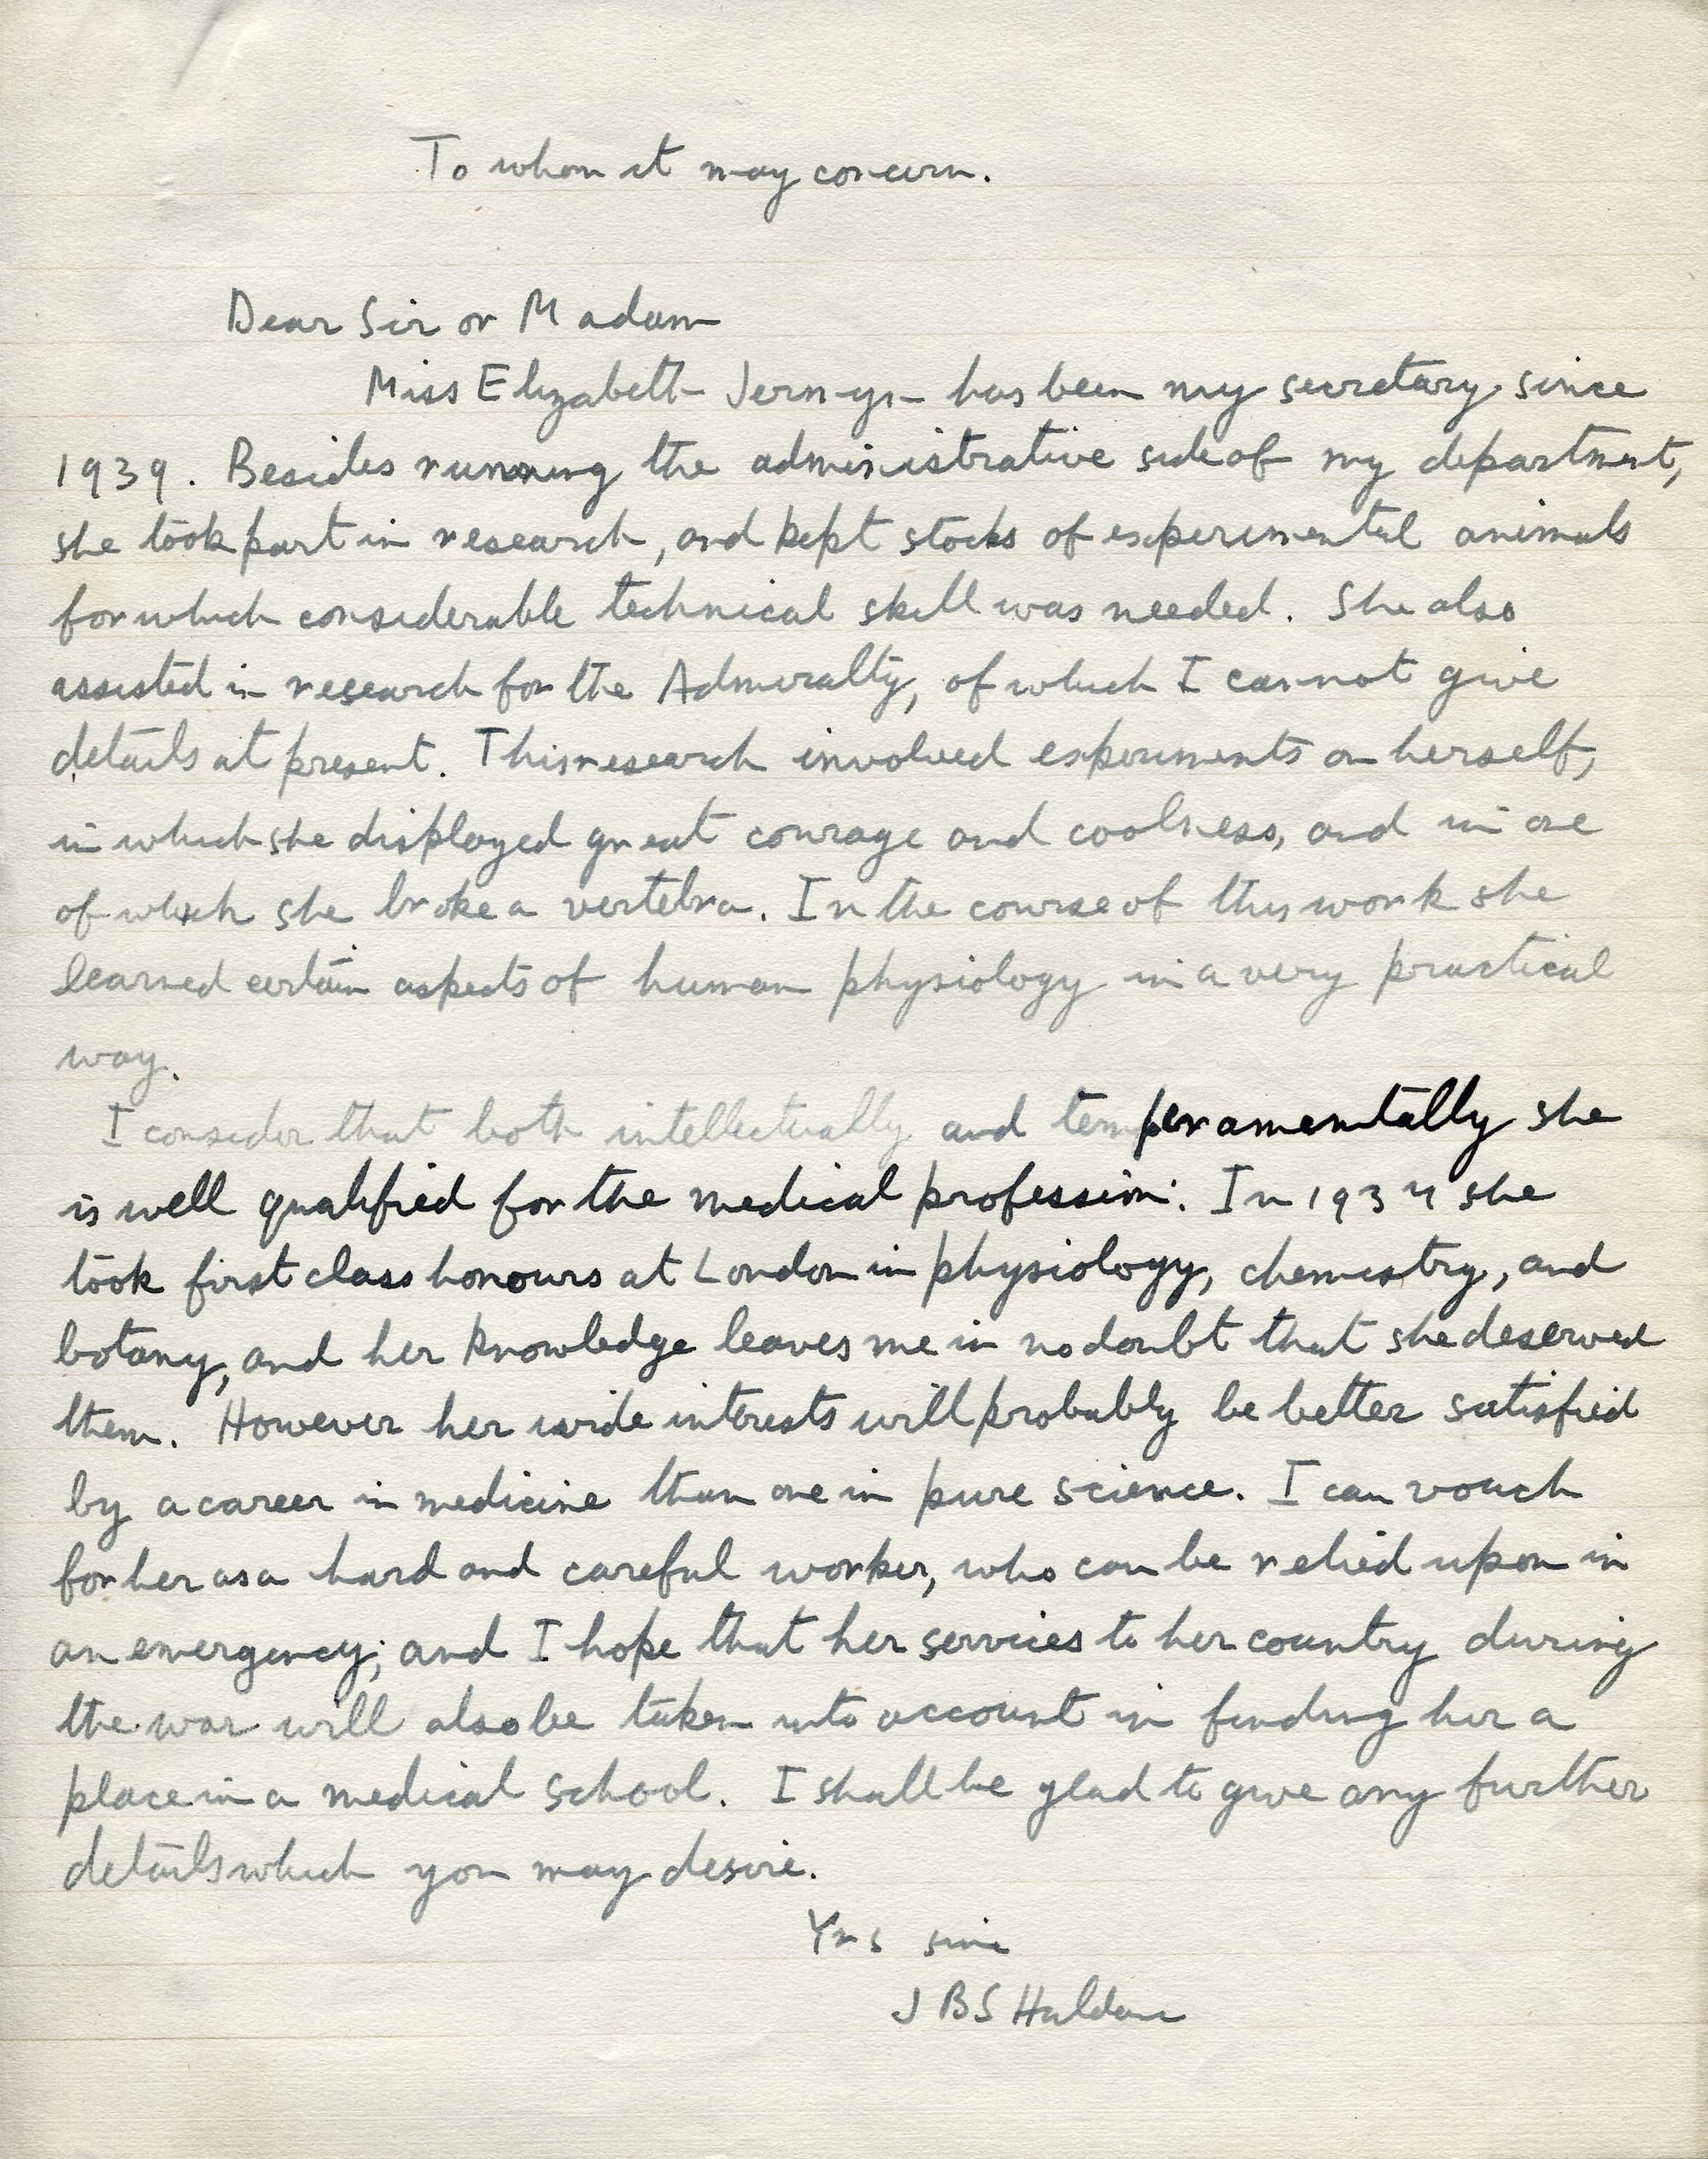 To whom it may concern.
Dear Sir or Madam
Miss Elizabeth Jermyn has been my secretary since
1939. Besides running the administrative side of my department,
she took part in research, and kept stocks of experimental animals
for which considerable technical skill was needed. She also
assisted in research for the Admiralty, of which I cannot give
details at present. This research involved experiments on herself,
in which she displayed great courage and coolness, and in one
of which she broke a vertebra. In the course of this work she
learned certain aspects of human physiology in a very practical
way.
I consider that both intellectually and temperamentally she
is well qualified for the medical profession. In 1934 she
took first class honours at London in physiology, chemistry, and
botany, and her knowledge leaves me in no doubt that she deserved
them. However her wide interests will probably be better satisfied
by a career in medicine than one in pure science. I can vouch
for her as a hard and careful worker, who can be relied upon in
an emergency; and I hope that her services to her country during
the war will also be taken into account in finding her a
place in a medical school. I shall be glad to give any further
details which you may desire.
Yrs sinc
J B S Haldane